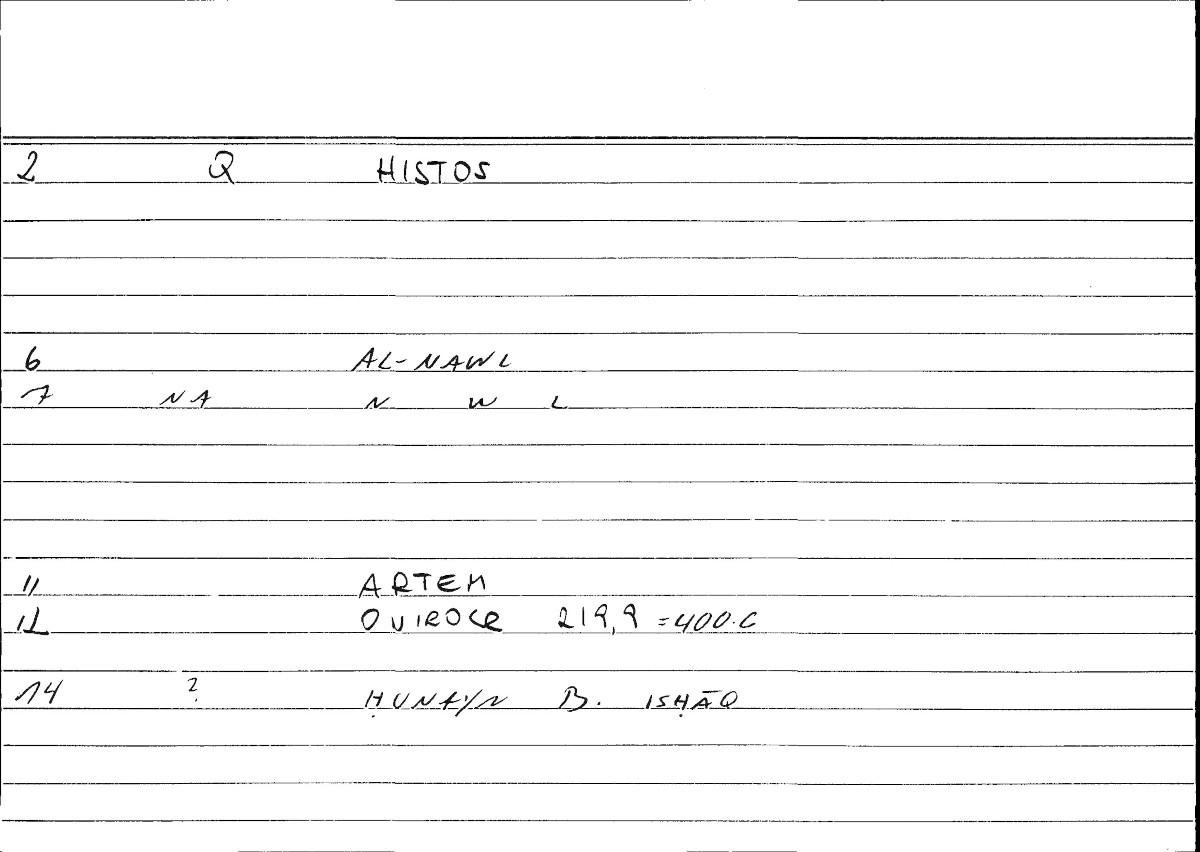 2 Q HISTOS
6 AL-NAWL
7 NA N W L
11 ARTEM
12 ONIROCR 219,9 = 400.C
14 ? ḤUNAYN B. ISḤĀQ